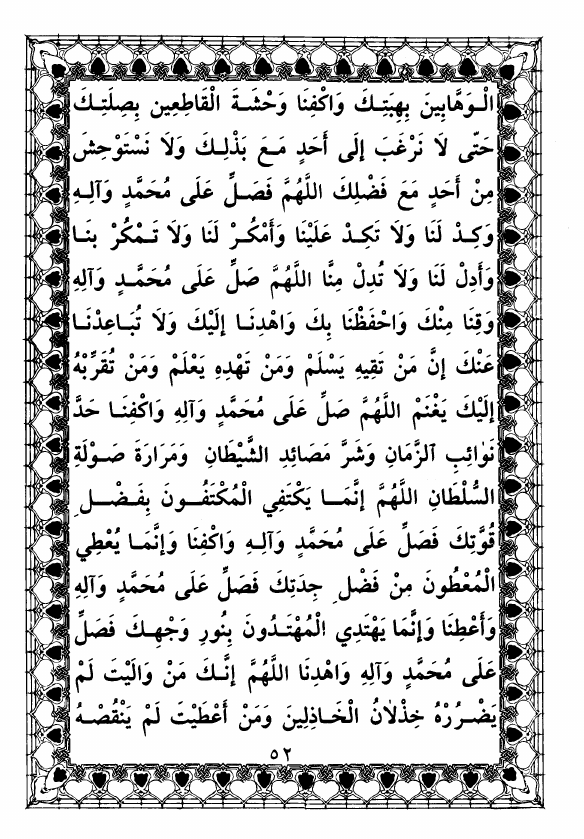 الْـوَهَّابِينَ بِهِبَتِـكَ وَاكْفِنَا وَحْشَـةَ الْقَاطِعِين بِصِلَتِـكَ
حَتّى لَا نَرْغَبَ إِلَى أَحَدٍ مَـعَ بَذْلِـكَ وَلَا نَسْتَوْحِشَ
مِنْ أَحَدٍ مَعَ فَضْلِكَ اللَّهُمَّ فَصَلِّ عَلَى مُحَمَّدٍ وَآلِـهِ
وَكِـدْ لَنَا وَلَا تَكِـدْ عَلَيْنَا وَأَمْكُـرْ لَنَا وَلَا تَـمْكُرْ بِنَـا
وَأَدِلْ لَنَا وَلَا تُدِلْ مِنَّا اللَّهُمَّ صَلِّ عَلَى مُحَمَّـدٍ وَآلِهِ
وَقِنَا مِنْكَ وَاحْفَظْنَا بِكَ وَاهْدِنَـا إِلَيْكَ وَلَا تُبَـاعِدْنَـا
عَنْكَ إِنَّ مَنْ تَقِيهِ يَسْلَمْ وَمَنْ تَهْدِهِ يَعْلَمْ وَمَنْ تُقَرِّبْهُ
إِلَيْكَ يَغْنَمْ اللَّهُمَّ صَلِّ عَلَى مُحَمَّدٍ وَآلِهِ وَاكْفِنَـا حَدَّ
نَوَائِبِ الزَّمَانِ وَشَرَّ مَصَائِدِ الشَّيْطَانِ وَمَرَارَةَ صَـوْلَةِ
السُّلْطَانِ اللَّهُمَّ إِنَّمَـا يَكْتَفِي الْمُكْتَفُـونَ بِفَضْـلِ
قُوَّتِكَ فَصَلِّ عَلَى مُحَمَّدٍ وَآلِـهِ وَاكْفِنَا وَإِنَّمَـا يُعْطِي
الْمُعْطُونَ مِنْ فَضْلِ جِدَتِكَ فَصَلِّ عَلَى مُحَمَّدٍ وَآلِهِ
وَأَعْطِنَا وَإِنَّمَا يَهْتَدِي الْمُهْتَـدُونَ بِنُورِ وَجْهِـكَ فَصَلِّ
عَلَى مُحَمَّدٍ وَآلِهِ وَاهْدِنَا اللَّهُمَّ إِنَّـكَ مَنْ وَالَيْتَ لَمْ
يَضْـرُرْهُ خِذْلَانُ الْخَـاذِلِينَ وَمَنْ أَعْطَيْتَ لَمْ يَنْقُصْـهُ
٥٢